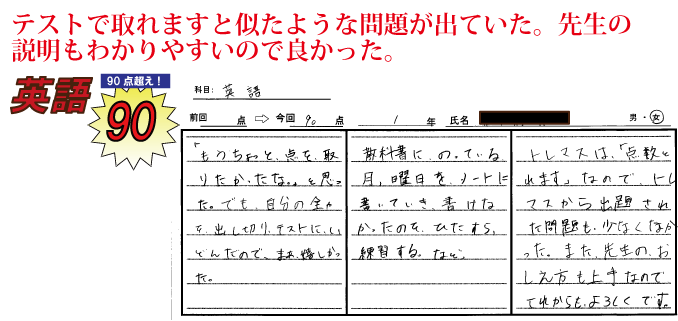 テストで取れますと似たような問題が出ていた。先生の
説明もわかりやすいので良かった。
英語
90点超え！
90
科目: 英語
前回 点 ⇨ 今回 90 点 1 年 氏名 男・女
「もうちょっと、点を、取
りたかったな。」と思っ
た。でも、自分の全力
を、出し切り、テストに、い
どんだので、まぁ、嬉しかっ
た。
教科書に、のっている
月、曜日を、ノートに
書いていき、書けな
かったのを、ひたすら、
練習する。など。
トレマスは、「点数と
れます」なので、トレ
マスから出題され
た問題も、少なくなか
った。また、先生の、お
しえ方も上手なので
これからも、よろしくです。